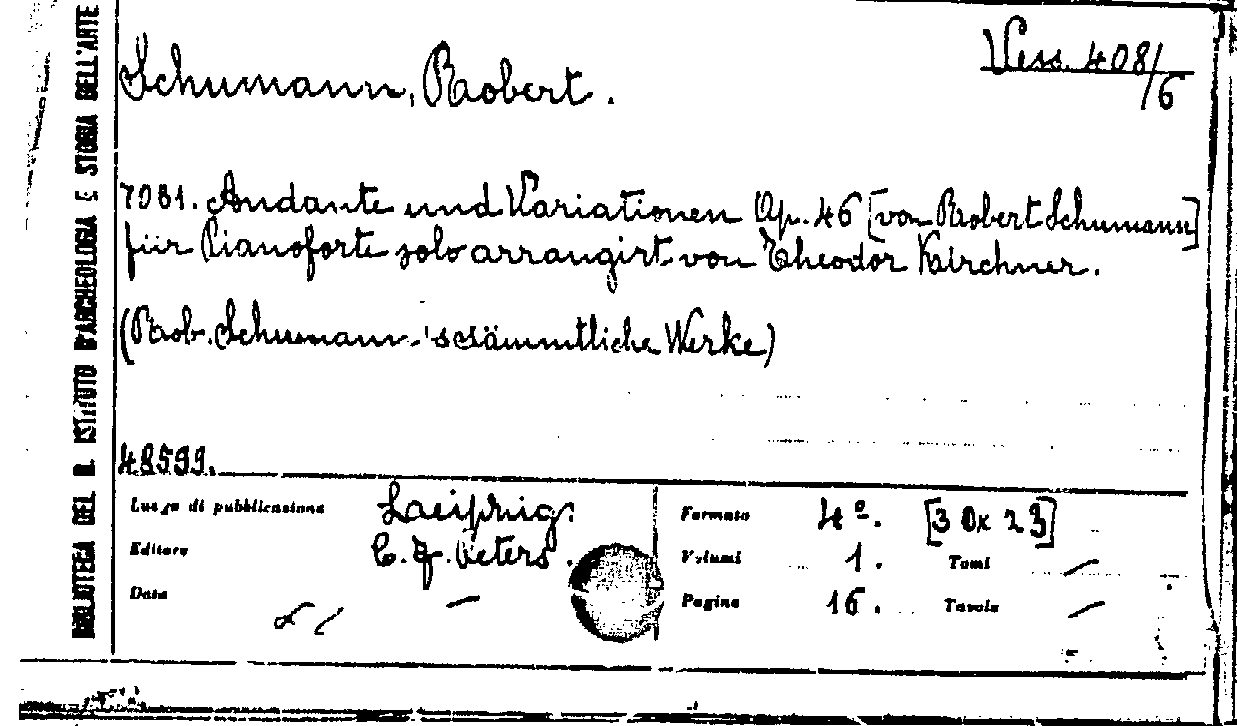 BIBLIOTECA DEL R. ISTITUTO D'ARCHEOLOGIA E STORIA DELL'ARTE
Vess. 408/6
Schumann, Robert.
7081. Andante und Variationen Op. 46 [von Robert Schumann]
für Pianoforte solo arrangirt von Theodor Kirchner.
(Rob. Schumann's sämmtliche Werke)
48599.
Luogo di pubblicazione Laeipzig.
Editore C. F. Peters.
Data —
Formato 4º. [30x23]
Volumi 1. Tomi —
Pagine 16. Tavole —